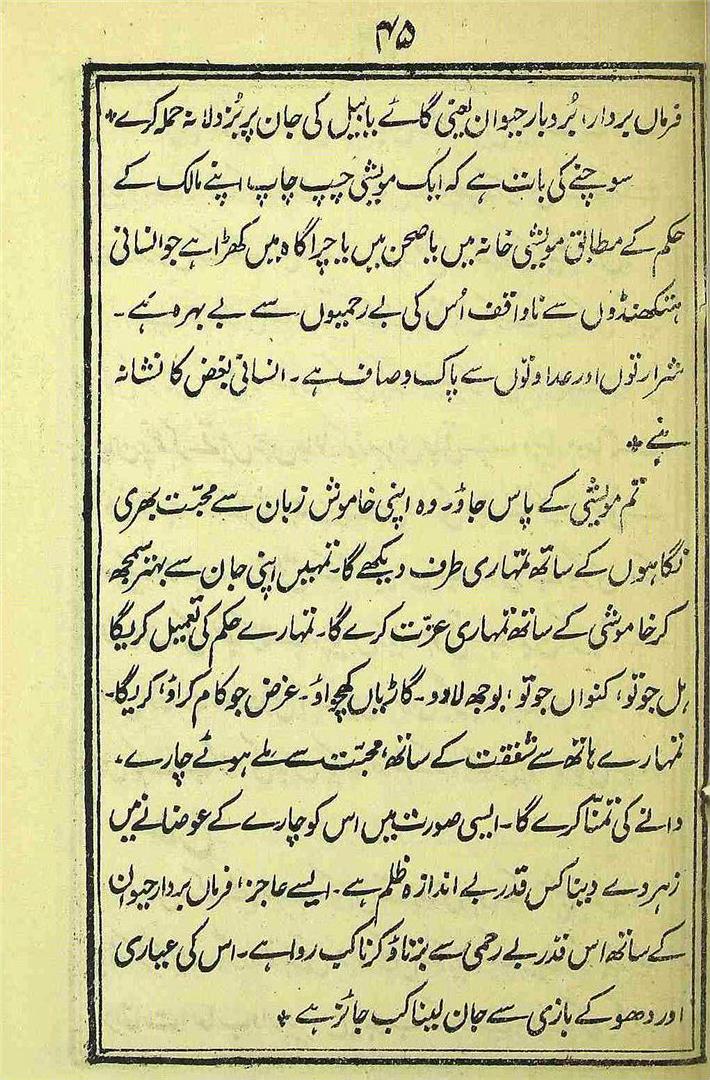 ۴۵
فرماں بردار، بُردبار حیوان یعنی گائے یا بیل کی جان پر بُزدلانہ حملہ کرے *
سوچنے کی بات ہے کہ ایک مویشی چپ چاپ اپنے مالک کے
حکم کے مطابق مویشی خانہ میں یا صحن میں یا چراگاہ میں کھڑا ہے جو انسانی
ہتکھنڈوں سے ناواقف اُس کی بے رحمیوں سے بے بہرہ ہے۔
شرارتوں اور عداوتوں سے پاک وصاف ہے۔ انسانی بُغض کا نشانہ
بنے *
تم مویشی کے پاس جاؤ۔ وہ اپنی خاموش زبان سے محبّت بھری
نگاہوں کے ساتھ تمہاری طرف دیکھے گا۔ تمہیں اپنی جان سے بہتر سمجھ
کر خاموشی کے ساتھ تمہاری عزّت کرے گا۔ تمہارے حکم کی تعمیل کریگا
ہل جوتو، کنواں جوتو، بوجھ لادو۔ گاڑیاں کھچواؤ۔ غرض جو کام کراؤ، کریگا۔
تمہارے ہاتھ سے شفقت کے ساتھ، محبّت سے ملے ہوئے چارے،
دانے کی تمنّا کرے گا۔ ایسی صورت میں اس کو چارے کے عوضانے میں
زہر دے دینا کس قدر بے اندازہ ظلم ہے۔ ایسے عاجز، فرماں بردار حیوان
کے ساتھ اس قدر بے رحمی سے برتاؤ کرنا کب روا ہے۔ اس کی عیاری
اور دھوکے بازی سے جان لینا کب جائز ہے *